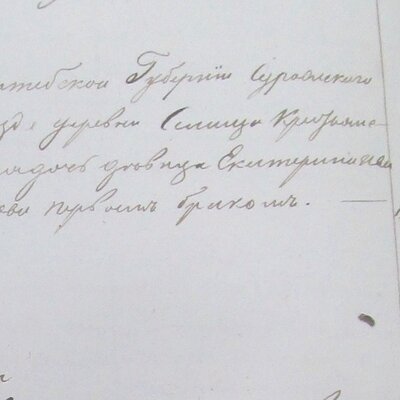 тебской Губернiи Суражскаго
деревни Селища Крестьян
дочь девица Екатерина
первымъ бракомъ. —